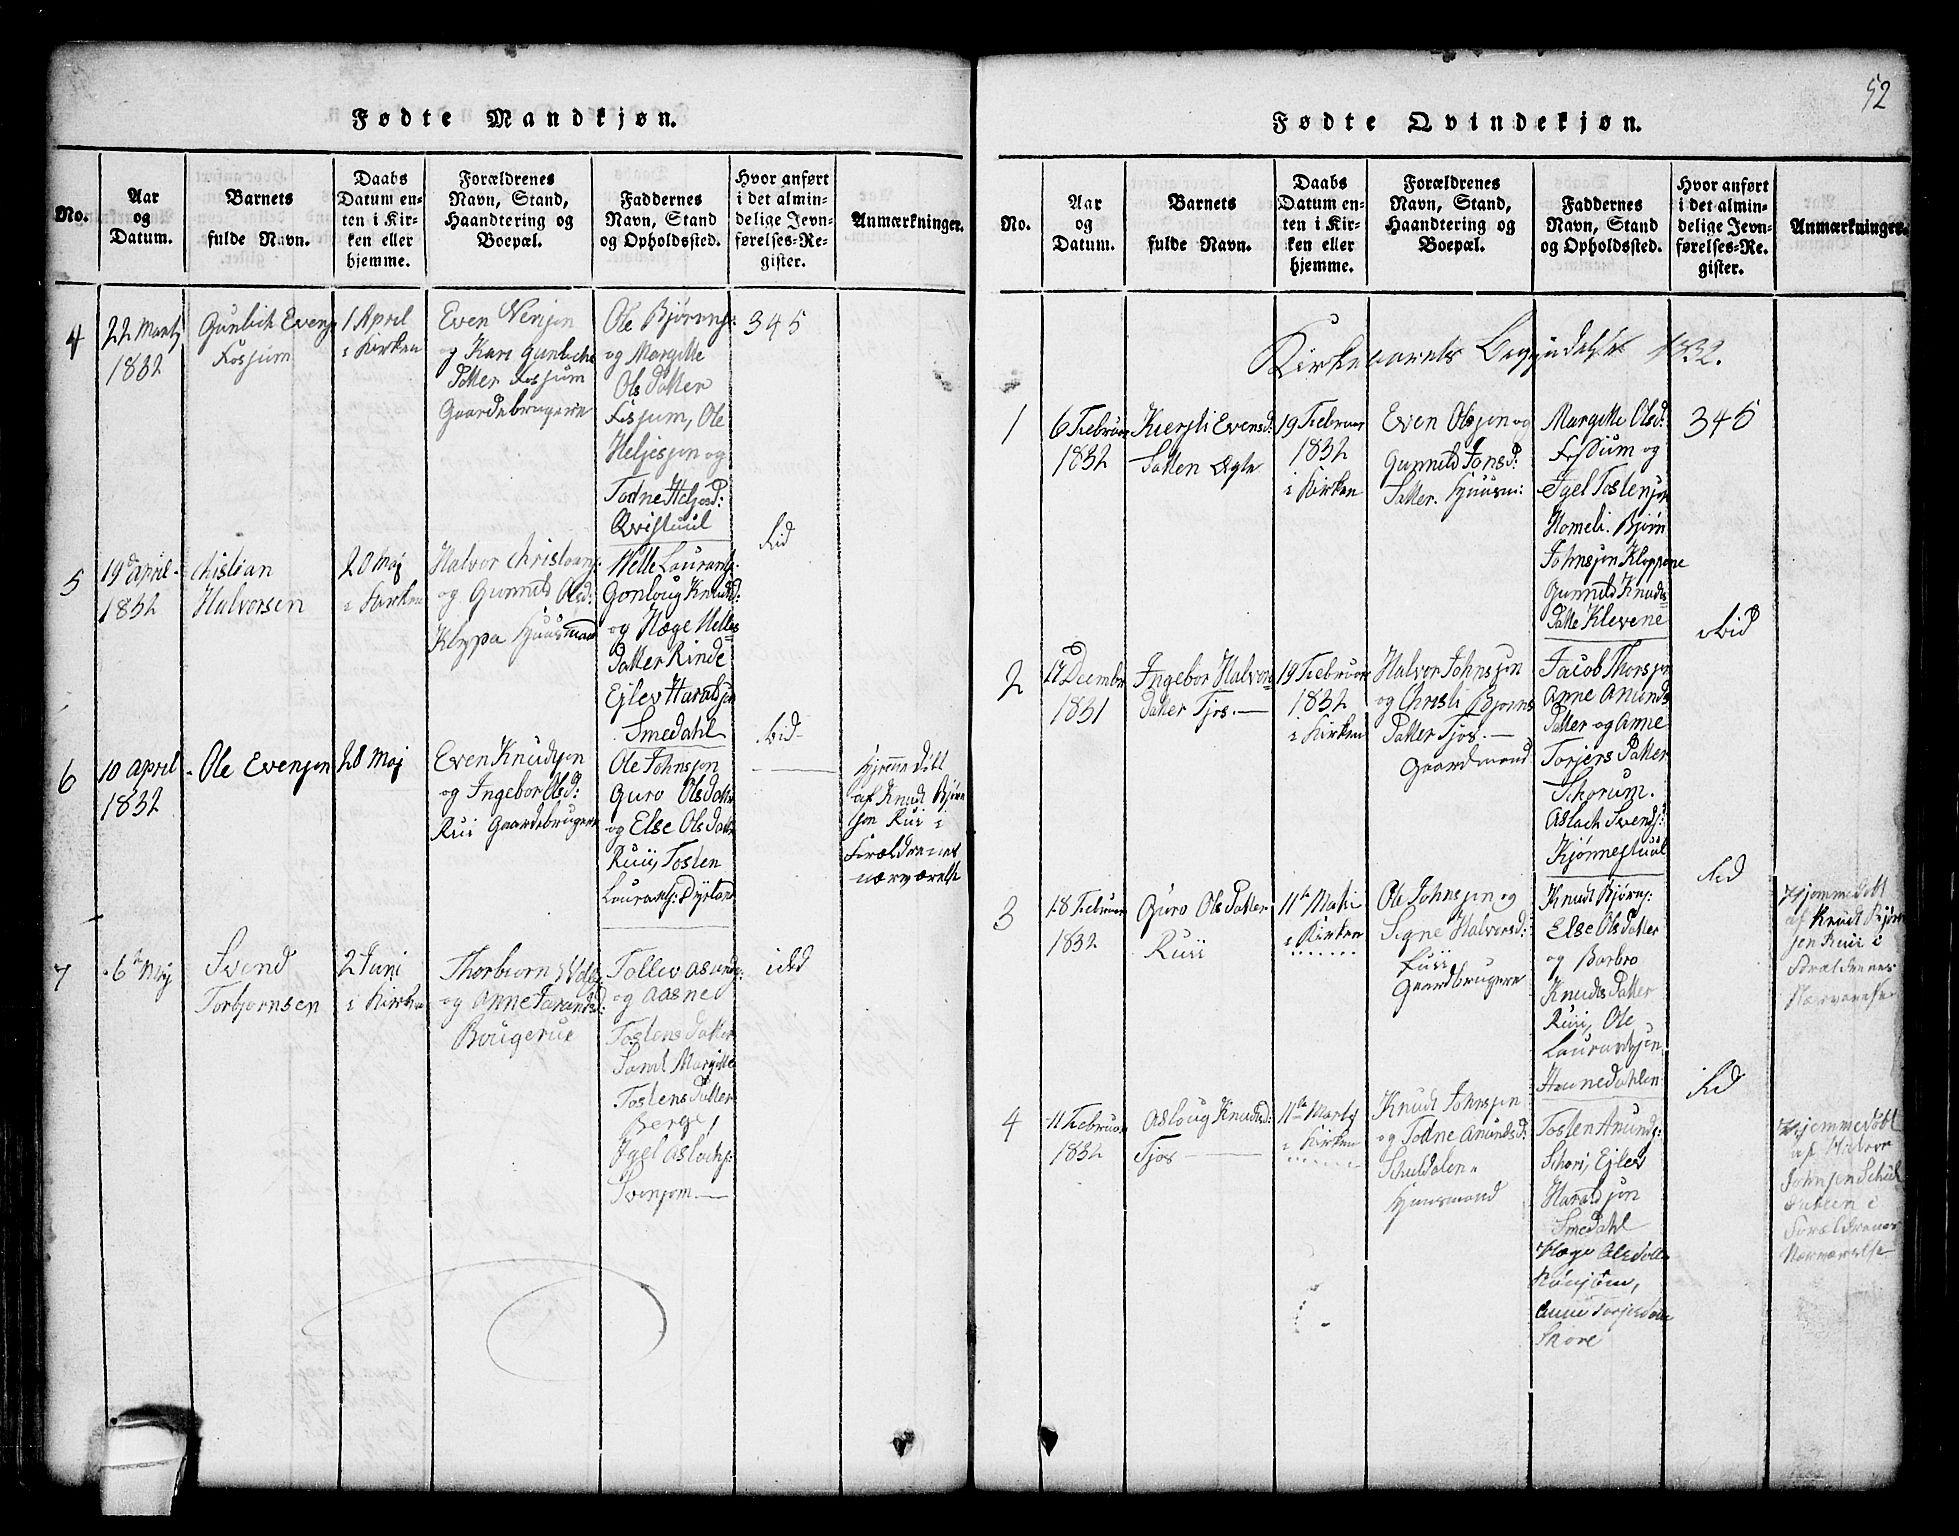 52
Fødte Mandkjøn.
No.
Aar
og
Datum.
Barnets
fulde Navn.
Daabs
Datum en-
ten i Kir-
ken eller
hjemme.
Forældrenes
Navn, Stand,
Haandtering og
Boepæl.
Faddernes
Navn, Stand
og Opholdssted.
Hvor anført
i det almin-
delige Jevn-
førelses-Re-
gister.
Anmærkninger.
4
22 Martz
1832
Gunlech Evens
Fossum
1 April
i Kirken
Even
og Kari Gunlechs
Datter Fossum
Gaardebrugere
Ole Bjørns:
og Margitte
Ols Datter
Fossum, Ole
Heljesjon og
Todne Heljesd:
Qvistuul
345
5
19de April
1832
Christian
Halvorsen
20 Maj
i Kirken
Halvor Christians:
og Gunnild Olsd:
Klypa Huusmand
Helle Laurants:
Gonloug Knudsd:
og Hæge Helles
Datter Rinde
Ejlev Haraldsjon
Smedahl
ibid
6
10 April
1832
Ole Evensjon
28 Maj
Even Knudsjon
og Ingebor Olsd:
Ruii Gaardebrugere
Ole Johnsjon
Guro Olsdatter
og Else Olsdatter
Ruii, Tosten
Laurants: Dyrland
ibid
Hjemmedøbt
af Knud Bjørn
sjon Ruii i
Forældrenes
nærværelse
7
6te Maj
Svend
Torbjornsen
2 Juni
i Kirken
Thorbiorn
og Anne
Bougerue
Tollev Asunds:
og Aasne
Tostens Datter
Samt Margitte
Tostens Datter
Berge,
Igel Aslachs:
Svenjom
ibid
Fødte Qvindekjøn.
No.
Aar
og
Datum.
Barnets
fulde Navn.
Daabs
Datum en-
ten i Kir-
ken eller
hjemme.
Forældrenes
Navn, Stand,
Haandtering og
Boepæl.
Faddernes
Navn, Stand
og Opholdssted.
Hvor anført
i det almin-
delige Jevn-
førelses-Re-
gister.
Anmærkninger.
Kirkeaarets Begyndelse 1832.
1
6 Februar
1832
Kiersti Evensd:
Satten Ægte
19 Februar
1832
i Kirken
Even Olsjon og
Gunnild Jonsd:
Satter. Huusm:
Margitte Olsd:
Fossum og
Igel Tostensjon
Homeli. Bjørn
Johnsjon Kleppene
Gunnild Knuds
Datte Klevene
345
2
17 December
1831
Ingebor Halvors
Datter Tjos.
19 Februar
1832
i Kirken
Halvor Johnsjon
og Christi Bjorns
Datter Tjos.
Gaardmand
Jacob Thorsjon
Anne Anunds
Datter og Anne
Torjers Datter
Schorum.
Aslach Svends:
Kjønnestuul
ibid
3
18 Februar
1832
Guro Ols Datter
Ruii
11te Marti
i Kirken
Ole Johnsjon og
Signe Halvorsd:
Ruii
Gaardbrugere
Knud Bjørns:
Else Ols Datter
og Barbro
Knuds Datter
Ruii, Ole
Laurantsjon
Haunedahlen
ibid
Hjemmedøbt
af Knud Bjørn
sjen Ruii i
Forældrenes
Nærværelse
4
11 Februar
1832
Asloug Knudsd:
Tjos
11te Martz
i Kirken
Knud Johnsjon
og Todne Anundsd:
Schuldalen
Huusmand
Tosten Anunds:
Schori, Ejlev
Haraldsjon
Smedahl
Hæge Olsdatter
Anne Torjersdatter
Skore
ibid
Hjemmedøbt
af Halvor
Johnsjen Schul
dalen i
Forældrenes
Nærværelse